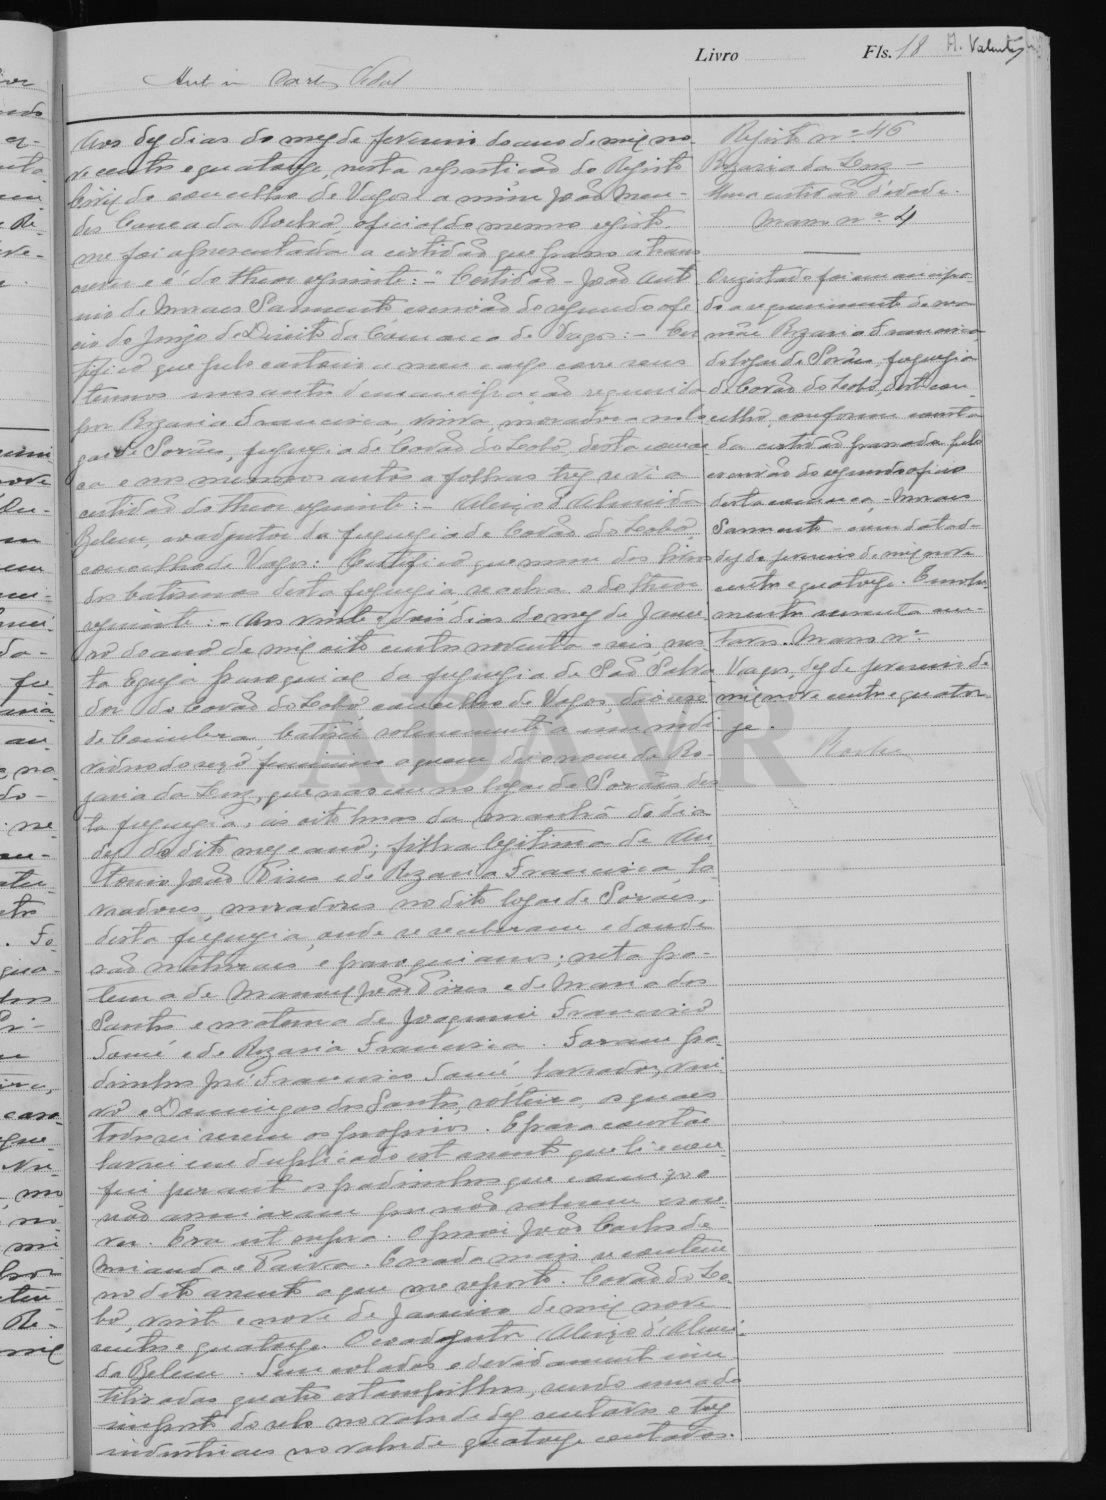 Livro Fls. 18 A. Valente
Aos dez dias do mez de fevereiro do anno de mil no-
ve centos e quatorze, nesta repartição do Registo
Civil do concelho de Vagos a mim João Men-
des Correa da Rocha, oficial do mesmo registo.
me foi apresentada a certidão que passo a trans
crever e é do theor seguinte: - "Certidão - João Anto
nio de Moraes Sarmento escrivão do segundo ofi
cio do Juizo de Direito da Comarca de Vagos: - Cer
tifico que pelo cartorio a meu cargo corre seus
termos uns autos d'emancipação requerida
por Rozaria Francisca, viuva, moradora no lo
gar de Porães, freguezia de Covão do Lobo, desta comar
ca e nos mesmos autos a folhas trez se vê a
certidão do theor seguinte: - Aleixo d'Almeida
Belem, coadjutor da freguezia de Covão do Lobo,
concelho de Vagos: Certifico que num dos livros
dos batismos desta freguezia se acha o do theor
seguinte: - Aos vinte e dois dias do mez de Janei
ro do anno de mil oito centos noventa e seis, nes
ta Egreja parroquial da freguezia de São Salva
dor do Covão do Lobo, concelho de Vagos, diocese
de Coimbra, batisei solenemente a um indi
viduo do sexo feminino a quem dei o nome de Ro
zaria da Luz, que nasceu no logar de Porães des
ta freguezia, ás oito horas da manhã do dia
dez do dito mez e anno; filha legitima de An
tonio João Pires e de Rozaria Francisca, la-
vradores, moradores no dito logar de Porães,
desta freguezia, onde se receberam e donde
são naturaes e parroquianos; neta pa-
terna de Manoel João Pires e de Maria dos
Santos e materna de Joaquim Francisco
Tomé e de Rozaria Francisca. Foram pa-
drinhos José Francisco Tomé, lavrador, viu
vo e Domingas dos Santos, solteira, os quaes
todos sei serem os proprios. E para constar
lavrei em duplicado este assento que li e con
feri perante os padrinhos que comigo o
não assinaram por não saberem escre
ver. Era ut supra. O prior João Carlos de
Miranda e Paiva. E nada mais se contem
no dito assento a que me reporto. Covão do Lo-
bo, vinte e nove de Janeiro de mil nove
centos e quatorze. O coadjutor Aleixo d'Almei-
da Belem. Tem colados e devidamente inu
tilisadas quatro estampilhas, sendo uma do
imposto do selo no valor de dez centavos e trez
industriaes no valor de quatorze centavos.
Registo nº 46
Rozaria da Luz -
Uma certidão d'idade.
Maço nº 4
O registado foi emancipa-
do a requerimento de sua
mãe Rozaria Francisca
do logar de Porães, freguezia
do Covão do Lobo, deste con-
celho, conforme consta
da certidão passada pelo
escrivão do segundo oficio
desta comarca, Moraes
Sarmento - com data de
dez de fevereiro de mil nove
centos e quatorze. Emolu-
mentos sessenta cen-
tavos. Maço nº
Vagos, dez de fevereiro de
mil nove centos e quator-
ze.
Rocha
ADAVR